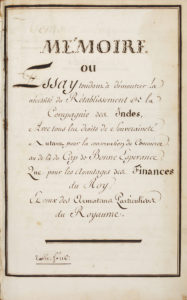 MÉMOIRE
OU
Essay tendant à démontrer la
nécessité du Rétablissement de la
Compagnie des Indes,
Avec tous les droits de Souveraineté
& autant pour la conservation du Commerce
au de là du Cap de Bonne Esperance
Que pour les avantages des Finances
du Roy
& ceux des Armateurs Particuliers
du Royaume.